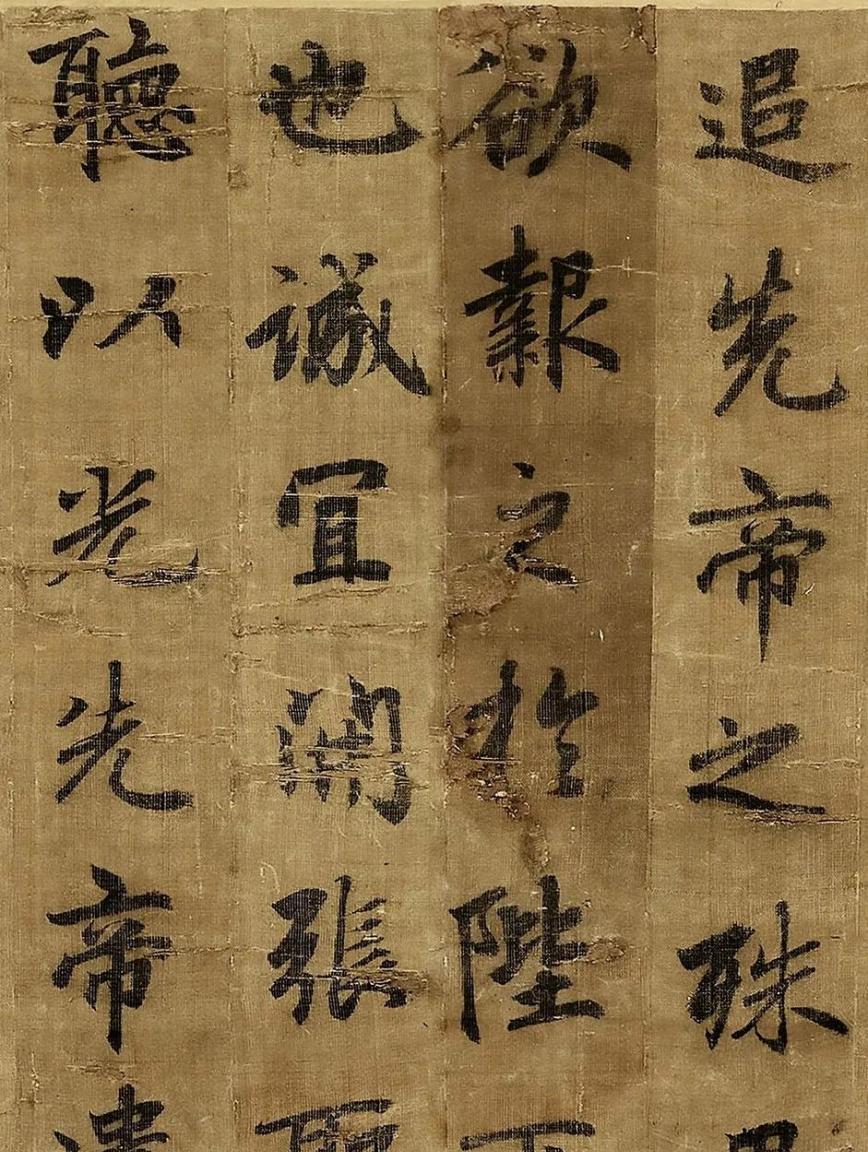 追先帝之殊
欲報之於陛
也誠宜開張
聽以光先帝